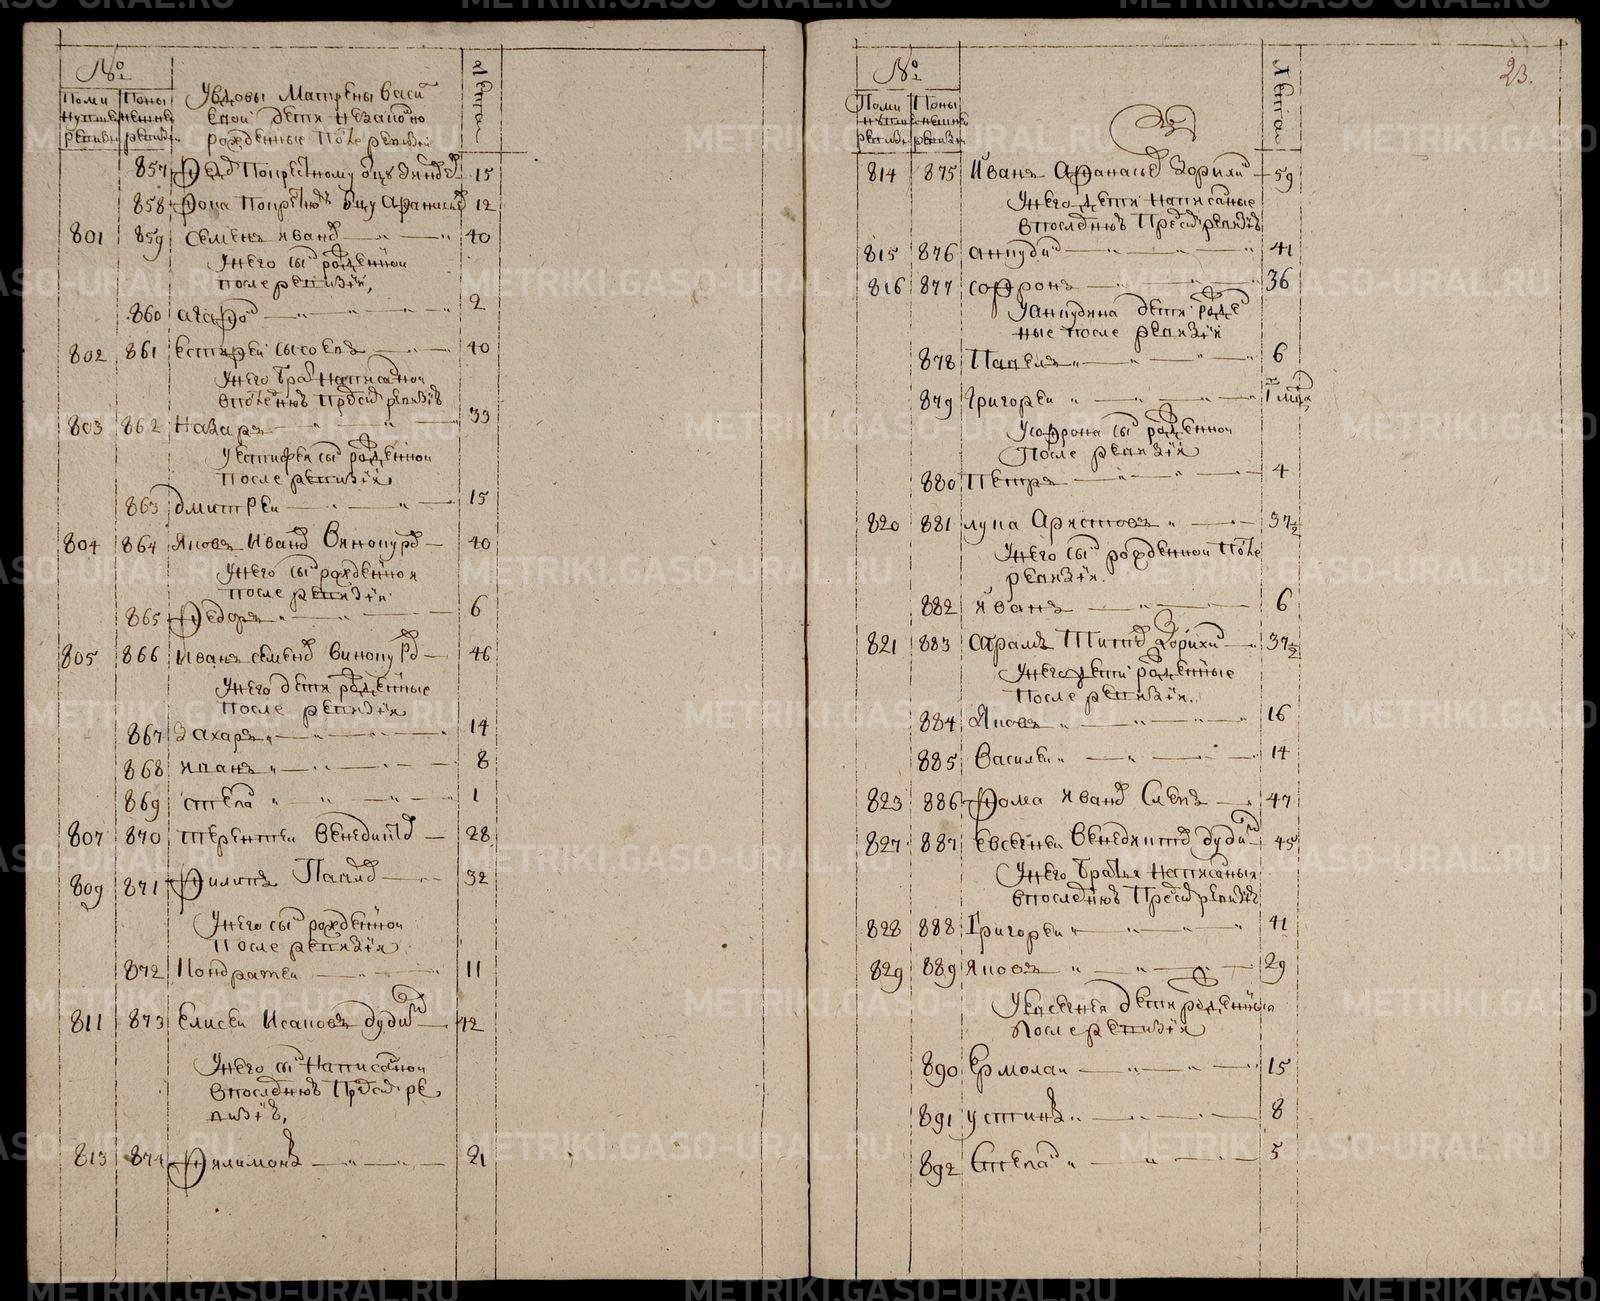 №
Поми
нутшей
ревизи
Поны
нешней
ревизи
Лета
Увдовы Матрены васи
евой дети незаконно
рожденные после ревизи
857 Фед Покрестному отцу 15
858 Фока Покресному отцу Афанасьев 12
801 859 Семенъ Иванов 40
Унего сын рожденной
после ревизии,
860 агафон 2
802 861 Естифеи сысоевъ 40
Унего брат написаной
впоследнюю пред сим ревизию
803 862 Назаръ 33
Уестифея сын рожденнои
После ревизии
863 дмитреи 15
804 864 Яковъ Иванов Винокуров 40
Унего сын рожденнои
после ревизии
865 Федоръ 6
805 866 Иванъ семенов Винокуров 46
Унего дети рожденные
После ревизии
867 Захаръ 14
868 иванъ 8
869 степан 1
807 870 терентеи Венедиктов 28
809 871 Филипъ Павлов 32
Унего сын рожденнои
После ревизии
872 Кондратеи 11
811 873 Елисеи Исаковъ дудин 42
Унего сын Написанои
впоследнюю Пред сим ре
визию,
813 874 Филимонъ 21
23.
№
Поми
нутшей
ревизи
Поны
нешней
ревизи
Лета
814 875 Иванъ Афанасьев Зорихин 59
Унего дети написаные
впоследнюю Пред сим ревизию
815 876 анкудин 41
816 877 софронъ 36
Уанкудина дети рожде
ные после ревизии
878 Павелъ 6
879 Григореи
Усофрона сын рожденнои
После ревизии
880 Петръ 4
820 881 лука Аристовъ 37½
Унего сын рожденнои после
ревизии.
882 иванъ 6
821 883 абрамъ Титов Зорихин 37½
Унего дети рожденные
После ревизии.
884 Яковъ 16
885 Василеи 14
823 886 Фома Иванов 47
827 887 Евсевеи Венедиктов дудин 45
Унего братья написаныя
впоследнюю Пред сим ревизию
828 888 Григореи 41
829 889 Яковъ 29
Уевсевея дети рожденныя
После ревизии
890 Ермолаи 15
891 устинъ 8
892 Степан 5